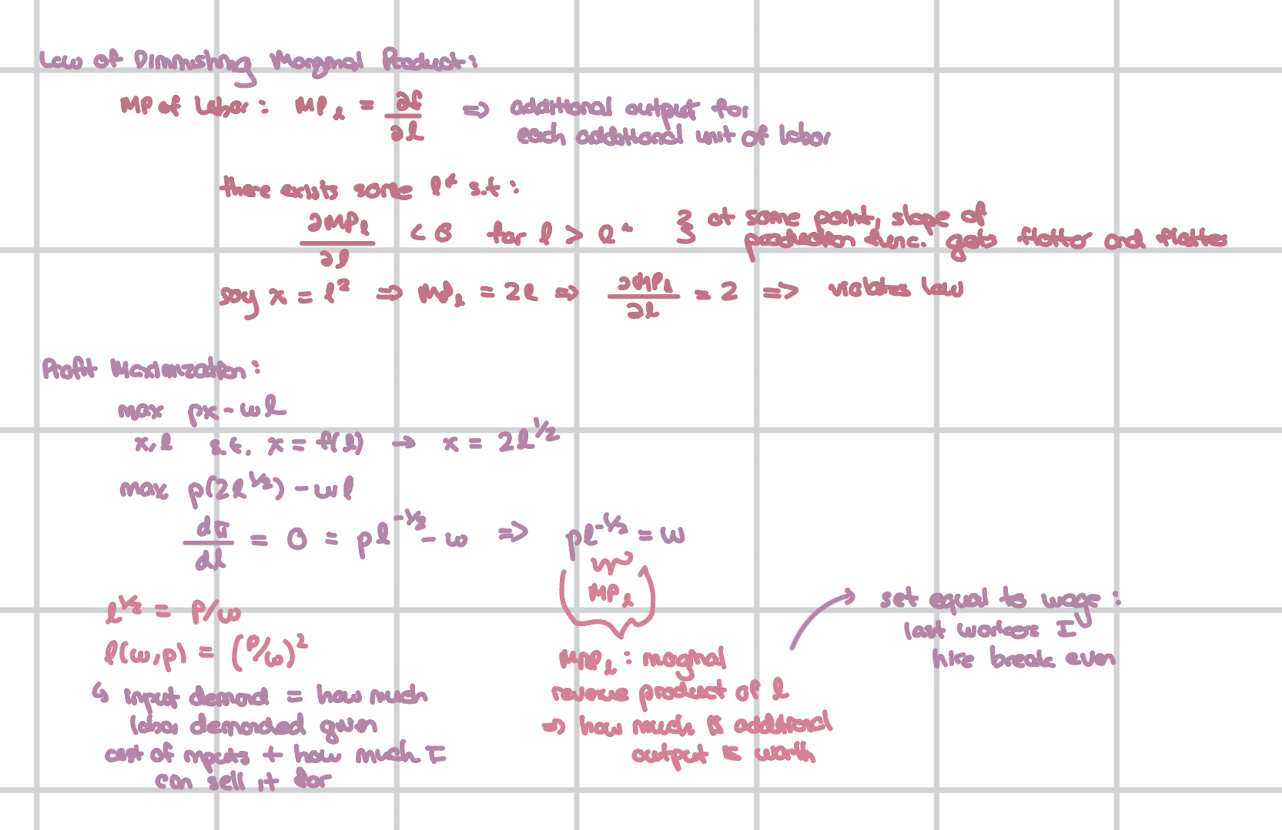 Law of Diminishing Marginal Product:
MP of Labor: MPₗ = ∂f/∂l ⇒ additional output for
each additional unit of labor
there exists some l* s.t:
∂MPₗ/∂l < 0 for l > l* } at some point, slope of
production func. gets flatter and flatter
say x = l² ⇒ MPₗ = 2l ⇒ ∂MPₗ/∂l = 2 ⇒ violates law
Profit Maximization:
max px - wl
x,l s.t. x = f(l) → x = 2l^1/2
max p(2l^1/2) - wl
dπ/dl = 0 = pl^-1/2 - w ⇒ pl^-1/2 = w
MPₗ
l^1/2 = P/w
l(w,p) = (P/w)²
↳ input demand = how much
labor demanded given
cost of inputs + how much I
can sell it for
MRPₗ: marginal
revenue product of l
⇒ how much is additional
output is worth
→ set equal to wage:
last workers I
hire break even